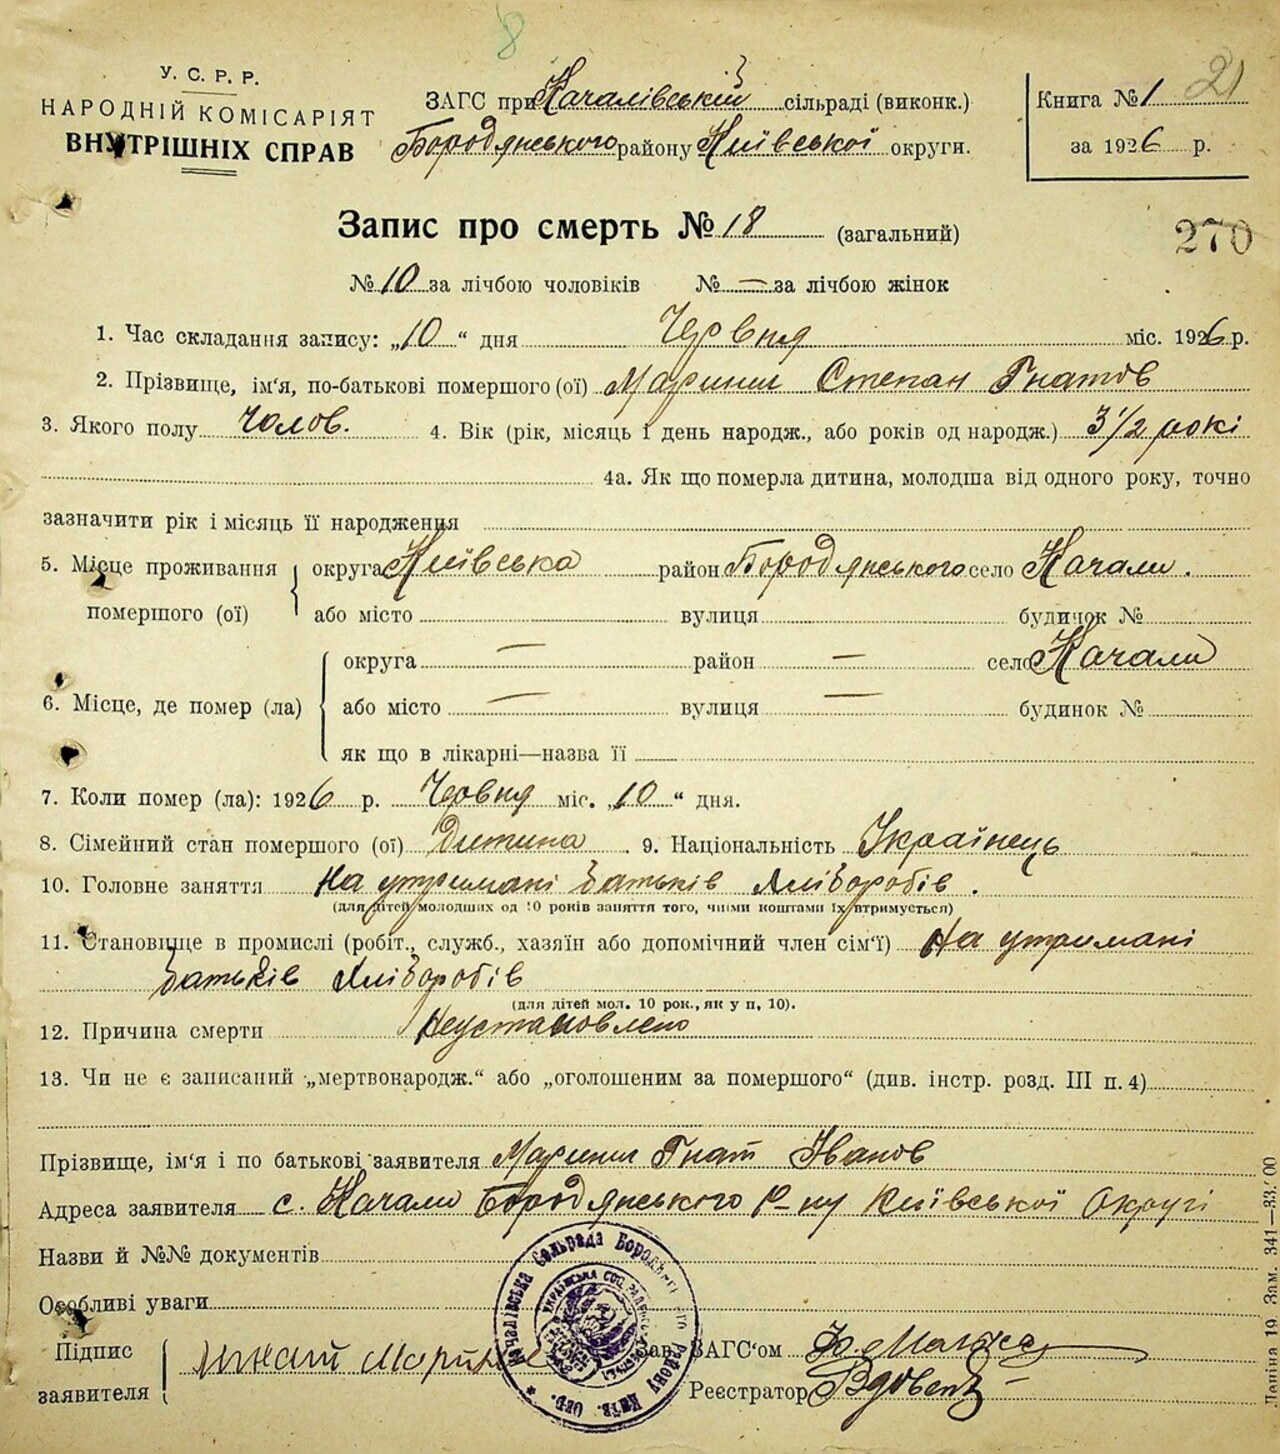 8
У. С. Р. Р.
НАРОДНІЙ КОМІСАРІЯТ
ВНУТРІШНІХ СПРАВ
ЗАГС при Качалівській сільраді (виконк.)
Бородянського району Київської округи.
Книга № 1 21
за 1926 р.
Запис про смерть № 18 (загальний)
270
№ 10 за лічбою чоловіків № — за лічбою жінок
1. Час складання запису: „10“ дня Червня міс. 1926 р.
2. Прізвище, ім‘я, по-батькові помершого (ої) Маринич Степан Гнатов
3. Якого полу Чолов. 4. Вік (рік, місяць і день народж., або років од народж.) 3 1/2 рокі
4а. Як що померла дитина, молодша від одного року, точно
зазначити рік і місяць її народження
5. Місце проживання округа Київська район Бородянського село Качали.
помершого (ої) або місто вулиця будинок №
округа — район — село Качали
6. Місце, де помер (ла) або місто — вулиця — будинок №
як що в лікарні—назва її
7. Коли помер (ла): 1926 р. Червня міс. „10“ дня.
8. Сімейний стан помершого (ої) Дитина 9. Національність Українець
10. Головне заняття На утримані батьків Хліборобів.
(для дітей молодших од 10 років заняття того, чиїми коштами їх втримується)
11. Становище в промислі (робіт., служб., хазяїн або допомічний член сім‘ї) На утримані
батьків Хліборобів
(для дітей мол. 10 рок., як у п, 10).
12. Причина смерти Неустановлено
13. Чи не є записаний „мертвонародж.“ або „оголошеним за помершого“ (див. інстр. розд. III п. 4)
Прізвище, ім‘я і по батькові заявителя Маринич Гнат Іванов
Адреса заявителя с. Качали Бородянського р-ну Київської Округі
Назви й №№ документів
Особливі уваги
Підпис
заявителя
Зав. ЗАГС‘ом
Реєстратор Вдовенко
Качалівська Сельрада Бородянського району Київ. Окр.
Зам. 341—33.